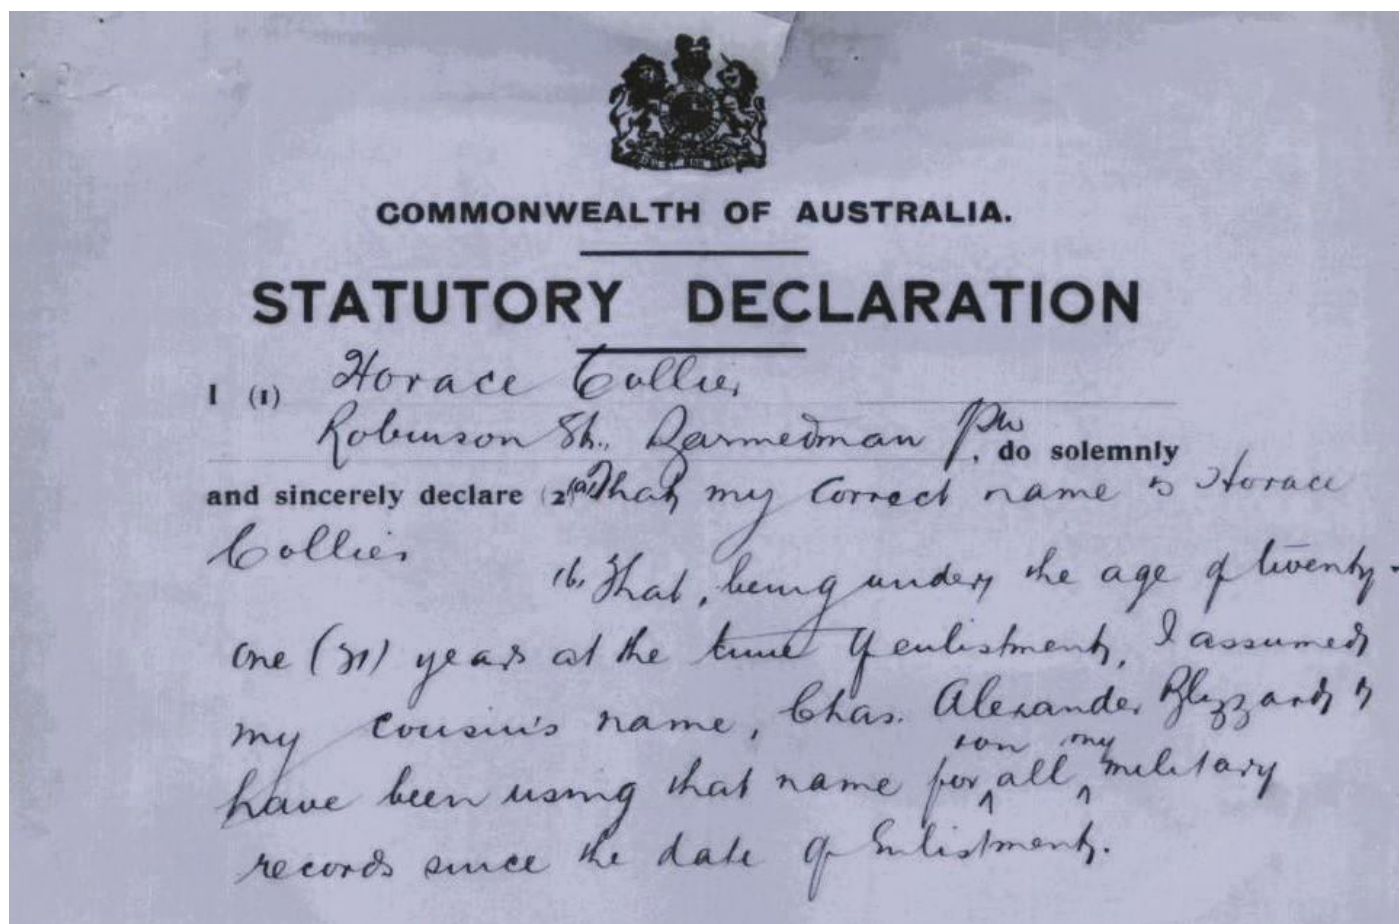 COMMONWEALTH OF AUSTRALIA.
STATUTORY DECLARATION
I (1) Horace Collier
Robinson St. Barmedman , do solemnly
and sincerely declare (2 (a) That my correct name is Horace
Collier
(b) That, being under the age of twenty-
one (21) years at the time of enlistment, I assumed
my cousin's name, Chas. Alexander Blizzard &
have been using that name for on all my military
records since the date of Enlistment.